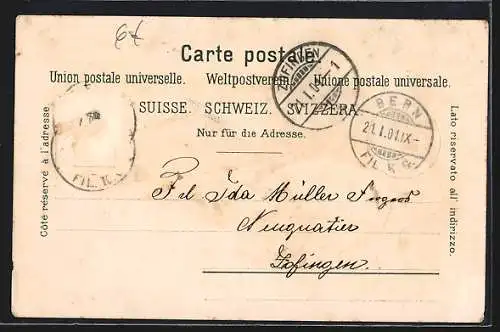 6x
Carte postale.
Union postale universelle. Weltpostverein. Unione postale universale.
SUISSE. SCHWEIZ. SVIZZERA.
Nur für die Adresse.
Côté réservé à l'adresse
Lato riservato all' indirizzo.
ZOFINGEN
21.I.01
BERN
21.I.01.IX-
FIL. K.
FIL. K.
Frl Ida Müller
Neuquartier
Zofingen.